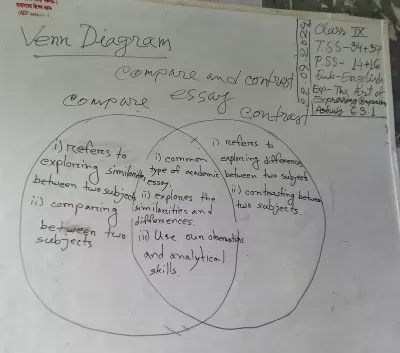 Venn Diagram
compare and contrast
essay
compare
contrast
Class IX
TSS-34+37
PSS-14+16
Sub-English
Exp-The Art of
Expressing Comparison
Activity 6.3.1
02.09.2024
i) Refers to
exploring similarities
between two subjects
ii) comparing
between two
subjects
i) common
type of academic
essay.
ii) explores the
similarities and
differences.
iii) Use our observations
and analytical
skills.
i) refers to
exploring differences
between two subjects
ii) contrasting between
two subjects.